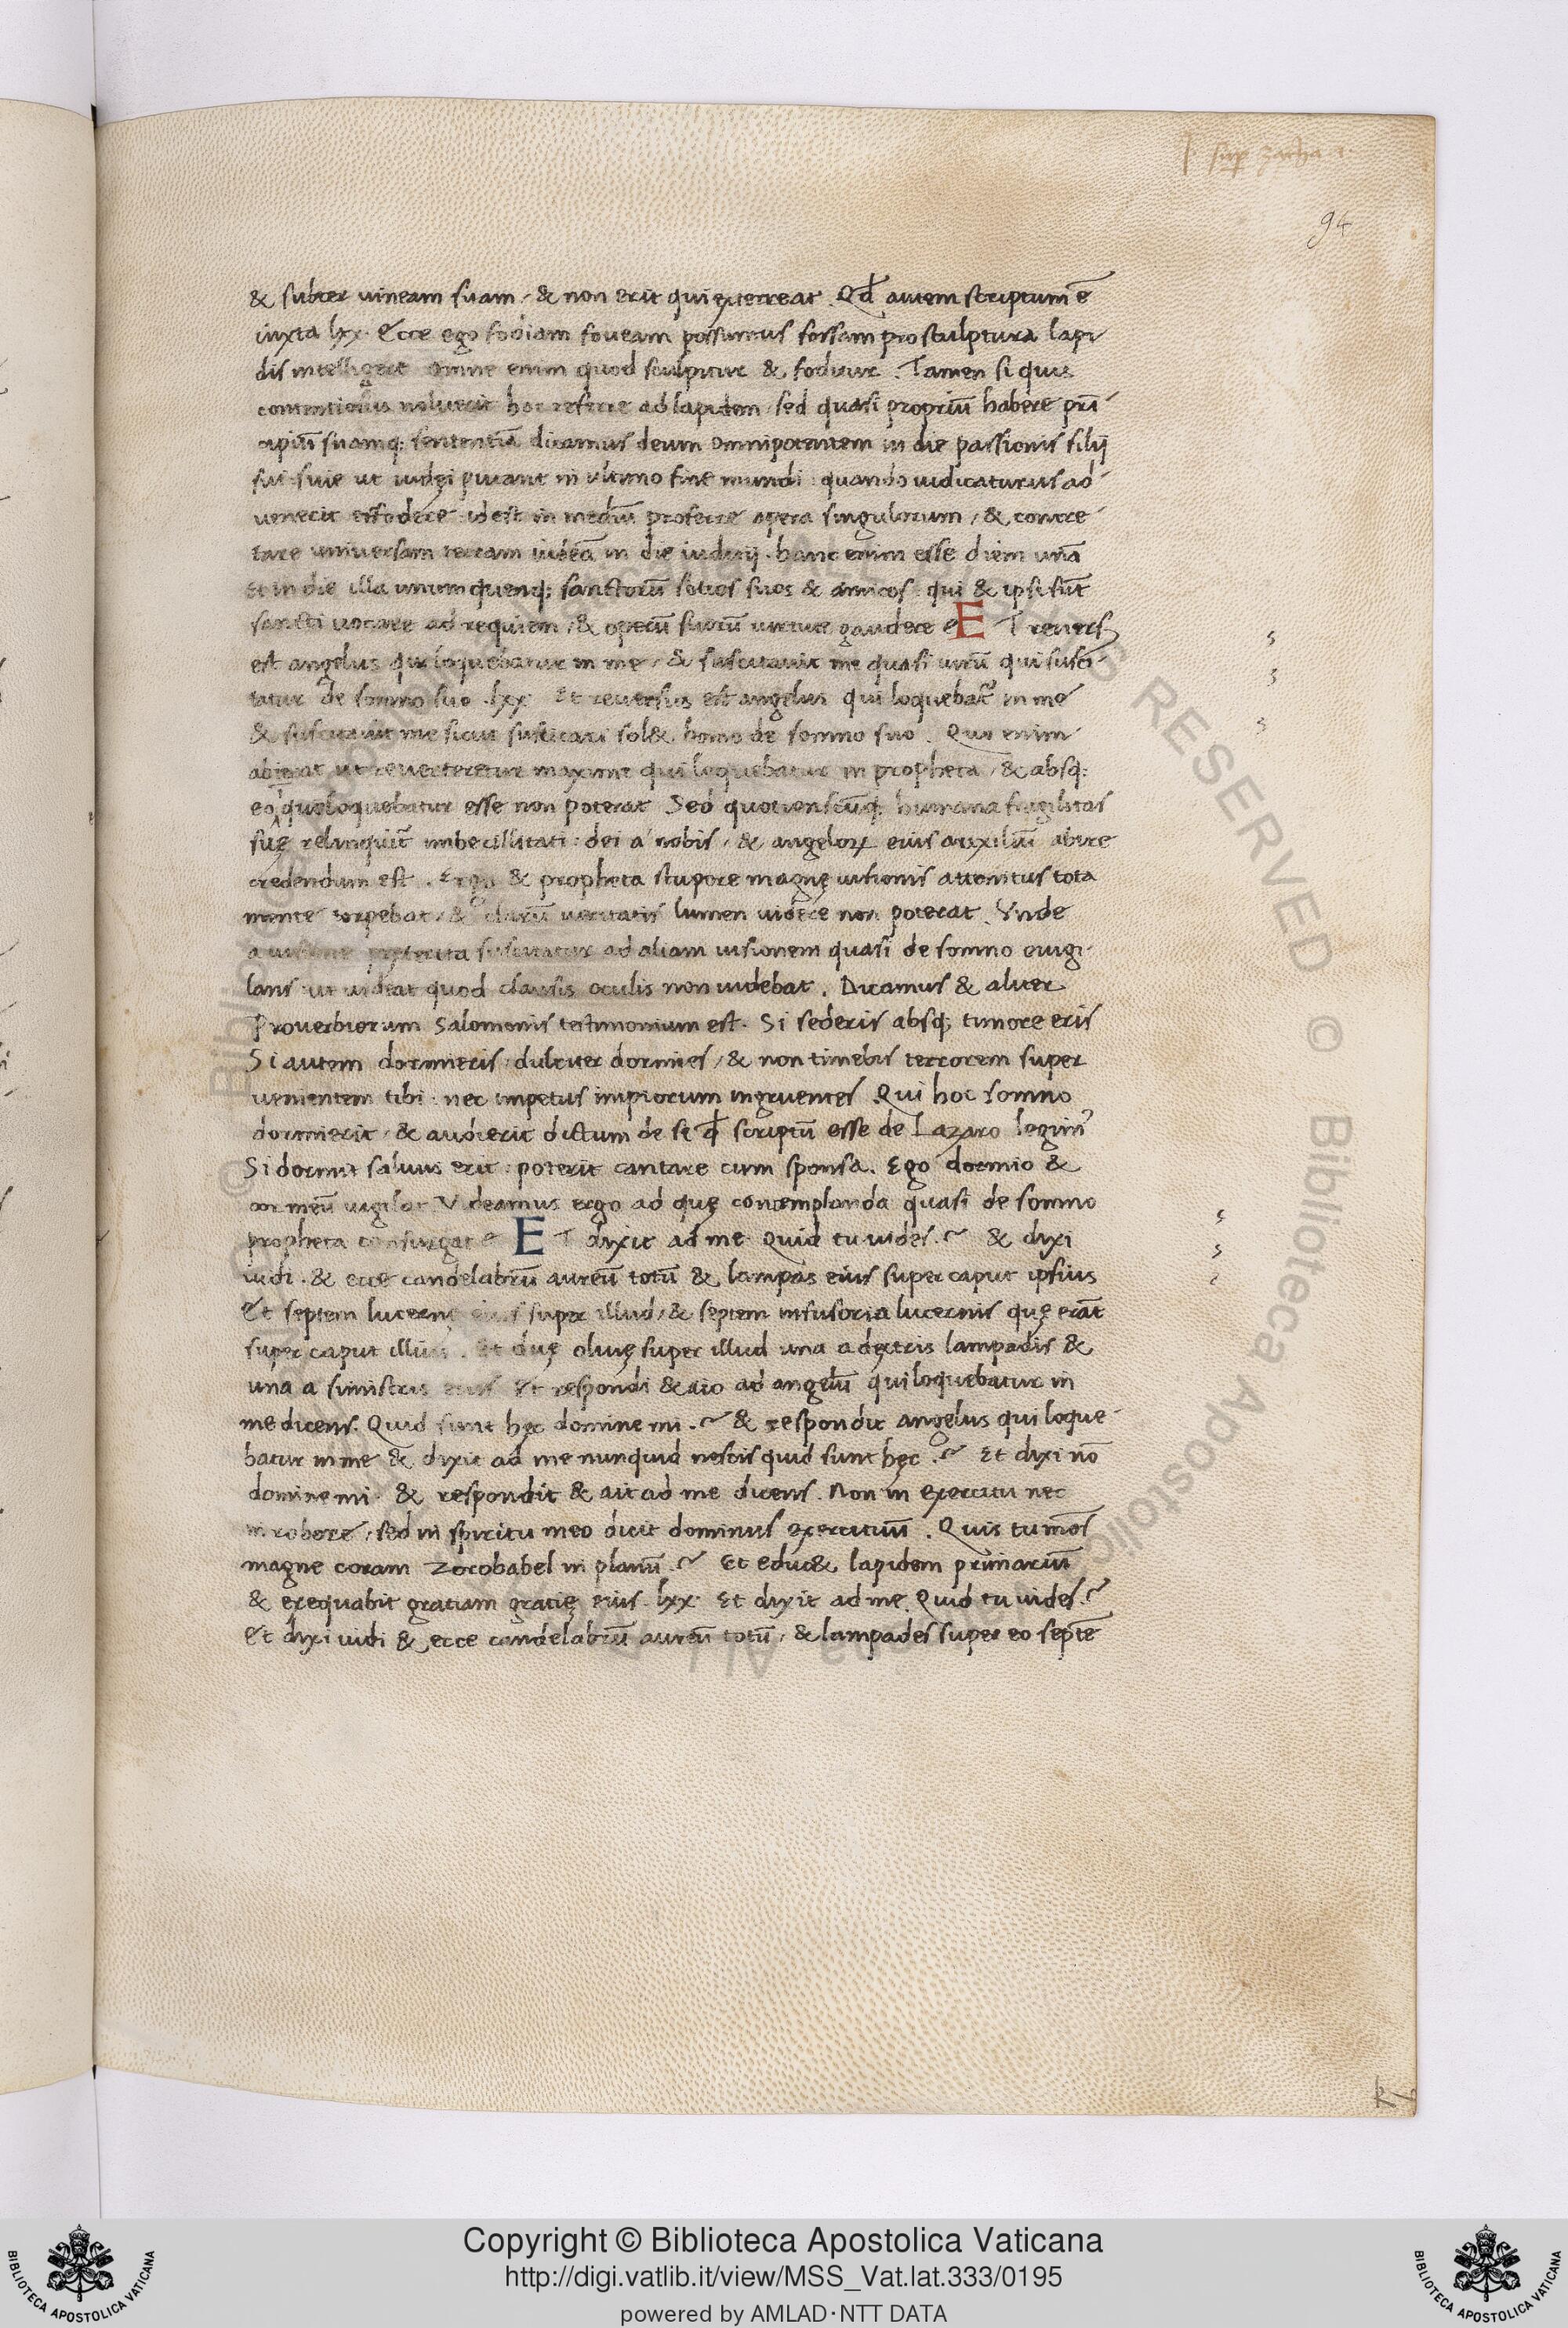 sup zacha 1.
94
& subter uineam suam / & non erit qui exterreat . Qđ autem scriptum ē
iuxta lxx . Ecce ego fodiam foueam possumus fossam pro sculptura lapi
dis intelligere omne enim quod sculpitur & foditur . Tamen si quis
contentiosus noluerit hoc referre ad lapidem / sed quasi propriū habere prī
cipiū suamq; sententiā dicamus deum omnipotentem in die passionis filij
sui siue ut iudęi putant in ultimo fine mundi : quando iudicaturus ad
uenerit effodere idest in mediū proferre opera singulorum / & contre
tare uniuersam terram iudeā in die iudicij . hanc enim esse diem unā
et in die illa unumquenq; sanctorū sotios suos & amicos : qui & ipsi sūt
sancti uocare ad requiem / & operū suorū uirtute gaudere E T reuers
est angelus qui loquebatur in me / & suscitauit me quasi uirū qui susci
tatur de somno suo . lxx . Et reuersus est angelus qui loquebat in me
& suscitauit me sicut suscitari sol& homo de somno suo . Quo enim
abierat ut reuerteretur maxime qui loquebatur in propheta / & absq:
eo qui loquebatur esse non poterat Sed quotienscūq; humana fragilitas
suę relinquit̄ imbecillitati : dei a nobis / & angeloꝝ eius auxiliū abire
credendum est . Ergo & propheta stupore magnę uisionis attonitus tota
mente torpebat / & clarū ueritatis lumen uidere non poterat . Vnde
a uisione preterita suscitatur ad aliam uisionem quasi de somno euigi
lans ut uideat quod clausis oculis non uidebat . Dicamus & aliter
Prouerbiorum Salomonis testimonium est . Si sederis absq; timore eris
Si autem dormieris : dulciter dormies / & non timebis terrorem super
uenientem tibi : nec impetus impiorum ingruentes Qui hoc somno
dormierit / & audierit dictum de se qđ scriptū esse de Lazaro legim
Si dormit saluus erit : poterit cantare cum sponsa . Ego dormio &
cor meū uigilat Videamus ergo ad quę contemplanda quasi de somno
propheta consurgat E T dixit ad me Quid tu uides . & dixi
uidi . & ecce candelabrū aureū totū & lampas eius super caput ipsius
Et septem lucernę eius super illud / & septem infusoria lucernis quę erāt
super caput illius . Et duę oliuę super illud una a dextris lampadis &
una a sinistris eius Et respondi & aio ad angelū qui loquebatur in
me dicens . Quid sunt hęc domine mi . & respondit angelus qui loque
batur in me & dixit ad me nunquid nescis quid sunt hęc . Et dixi nō
domine mi . & respondit & ait ad me dicens . Non in exercitu nec
in robore / sed in spiritu meo dicit dominus exercituū . Quis tu mōs
magne coram Zorobabel in planū . Et educ& lapidem primariū
& exequabit gratiam gratię eius . lxx . Et dixit ad me . Quid tu uides .
Et dixi uidi & ecce candelabrū aureū totū / & lampades super eo septē
Copyright © Biblioteca Apostolica Vaticana
http://digi.vatlib.it/view/MSS_Vat.lat.333/0195
powered by AMLAD·NTT DATA